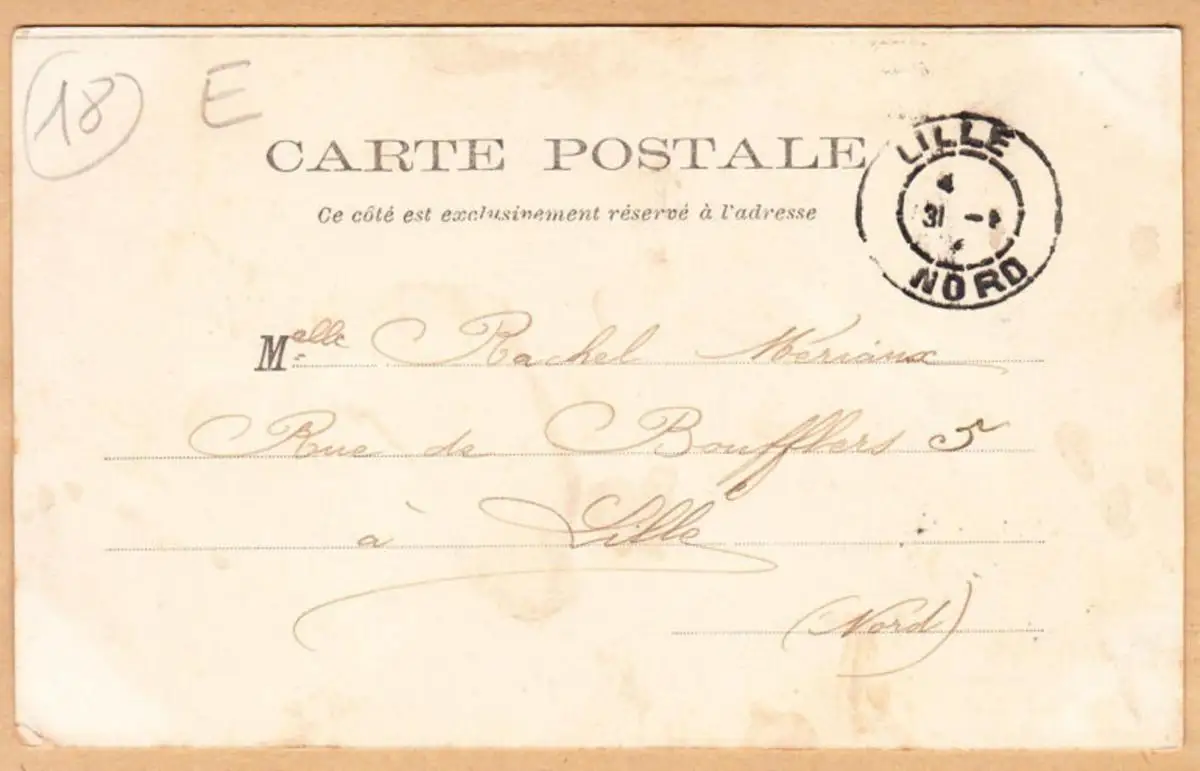 18 E
CARTE POSTALE
Ce côté est exclusivement réservé à l'adresse
LILLE
31 -1
NORD
Melle Rachel Mériaux
Rue de Boufflers 5
à Lille
(Nord)